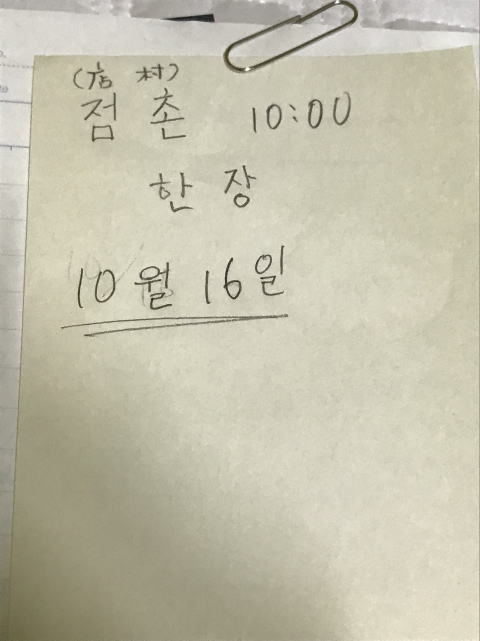 (店 村)
점 촌 10:00
한 장
10월 16일